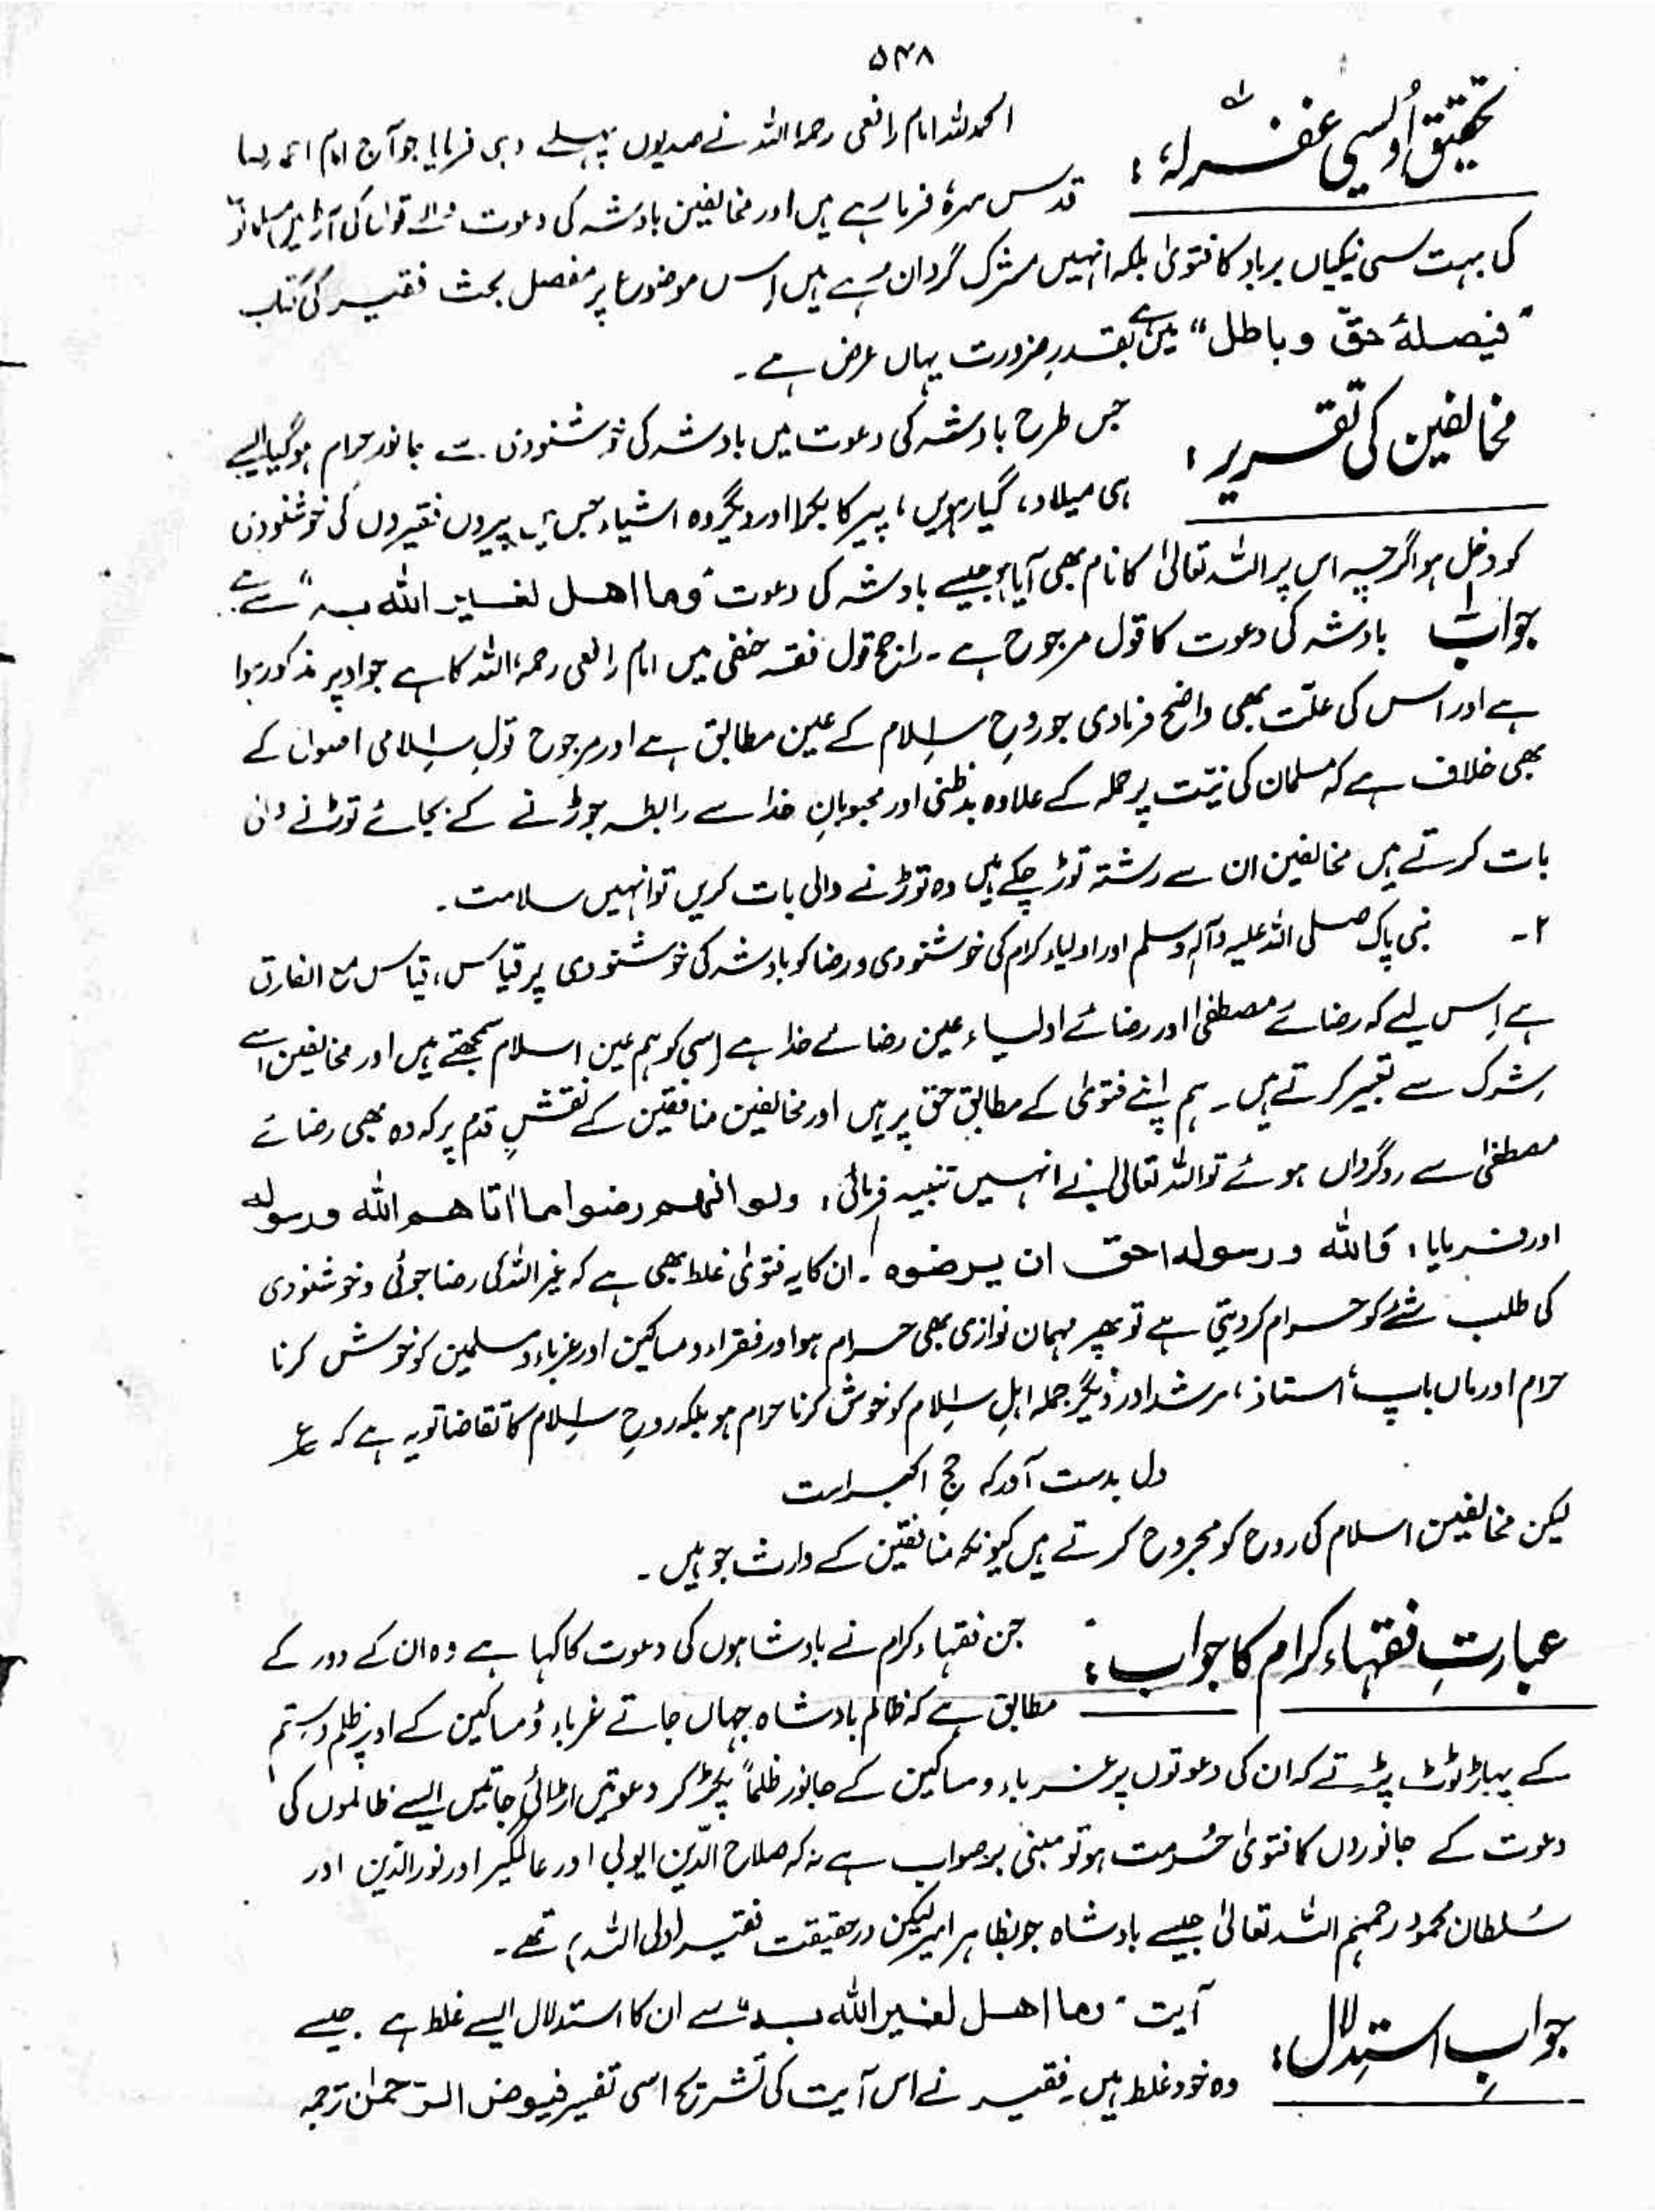 ۵۴۸
تحقیق اُویسی غفرلہٗ :
الحمد للہ امام رافعی رحمہ اللہ نے صدیوں پہلے وہی فرمایا جو آج امام احمد رضا
قدس سرہٗ فرما رہے ہیں اور مخالفین بادشہ کی دعوت والے قول کی آڑ میں
کی بہت سی نیکیاں برباد کا فتویٰ بلکہ انہیں مشرک گردان رہے ہیں اِس موضوع پر مفصل بحث فقیر کی کتاب
"فیصلۂ حقّ و باطل" میں ہے بقدرِ ضرورت یہاں عرض ہے ۔
مخالفین کی تقریر :
جس طرح بادشہ کی دعوت میں بادشہ کی خوشنودی سے جانور حرام ہوگیا ایسے
ہی میلاد، گیارہویں، پیر کا بکرا اور دیگر وہ اشیاء جس میں پیروں فقیروں کی خوشنودی
کو دخل ہو اگرچہ اس پر اللہ تعالیٰ کا نام بھی آیا ہو جیسے بادشہ کی دعوت "وما اھل لغیر اللہ بہ" سے ہے
جواب ۱ بادشہ کی دعوت کا قول مرجوح ہے ۔ راجح قول فقہ حنفی میں امام رافعی رحمہ اللہ کا ہے جو اوپر مذکور ہوا
ہے اور اس کی علّت بھی واضح فرمادی جو روحِ اسلام کے عین مطابق ہے اور مرجوح قول اسلامی اصول کے
بھی خلاف ہے کہ مسلمان کی نیّت پر حملہ کے علاوہ بدظنی اور محبوبانِ خدا سے رابطہ جوڑنے کے بجائے توڑنے والی
بات کرتے ہیں مخالفین ان سے رشتہ توڑ چکے ہیں وہ توڑنے والی بات کریں تو انہیں سلامت ۔
۲ - نبی پاک صلی اللہ علیہ وآلہٖ وسلم اور اولیاء کرام کی خوشنودی و رضا کو بادشہ کی خوشنودی پر قیاس، قیاس مع الفارق
ہے اِس لیے کہ رضائے مصطفیٰ اور رضائے اولیاء عین رضائے خدا ہے اسی کو ہم عین اسلام سمجھتے ہیں اور مخالفین اسے
شرک سے تعبیر کرتے ہیں ۔ ہم اپنے فتویٰ کے مطابق حق پر ہیں اور مخالفین منافقین کے نقشِ قدم پر کہ وہ بھی رضائے
مصطفیٰ سے روگرداں ہوئے تو اللہ تعالیٰ نے انہیں تنبیہ فرمائی : ولو انھم رضوا ما اتاھم اللہ ورسولہ
اور فرمایا : فاللہ ورسولہ احق ان یرضوہ ۔ ان کا یہ فتویٰ غلط بھی ہے کہ غیر اللہ کی رضا جوئی و خوشنودی
کی طلب شئے کو حرام کر دیتی ہے تو پھر مہمان نوازی بھی حرام ہو اور فقراء و مساکین اور غرباء مسلمین کو خوش کرنا
حرام اور ماں باپ، استاذ، مرشد اور دیگر جملہ اہلِ اسلام کو خوش کرنا حرام ہو بلکہ روحِ اسلام کا تقاضا تو یہ ہے کہ ع
دل بدست آور کہ حجِ اکبر است
لیکن مخالفین اسلام کی روح کو مجروح کرتے ہیں کیونکہ منافقین کے وارث جو ہیں ۔
عبارتِ فقہاء کرام کا جواب :
جن فقہاء کرام نے بادشاہوں کی دعوت کا کہا ہے وہ ان کے دور کے
مطابق ہے کہ ظالم بادشاہ جہاں جاتے غرباء و مساکین کے اوپر ظلم و ستم
کے پہاڑ ٹوٹ پڑتے کہ ان کی دعوتوں پر غرباء و مساکین کے جانور ظلماً پکڑ کر دعوتیں اڑائی جاتیں ایسے ظالموں کی
دعوت کے جانوروں کا فتویٰ حُرمت ہو تو مبنی بر صواب ہے نہ کہ صلاح الدّین ایوبی اور عالمگیر اور نورالدّین اور
سُلطان محمود رحمہم اللہ تعالیٰ جیسے بادشاہ جو بظاہر امیر لیکن درحقیقت فقیر (ولی اللہ) تھے ۔
جوابِ استدلال :
آیت "وما اھل لغیر اللہ بہ" سے ان کا استدلال ایسے غلط ہے ۔ جیسے
وہ خود غلط ہیں ۔ فقیر نے اس آیت کی تشریح اسی تفسیر فیوض الرّحمٰن ترجمہ